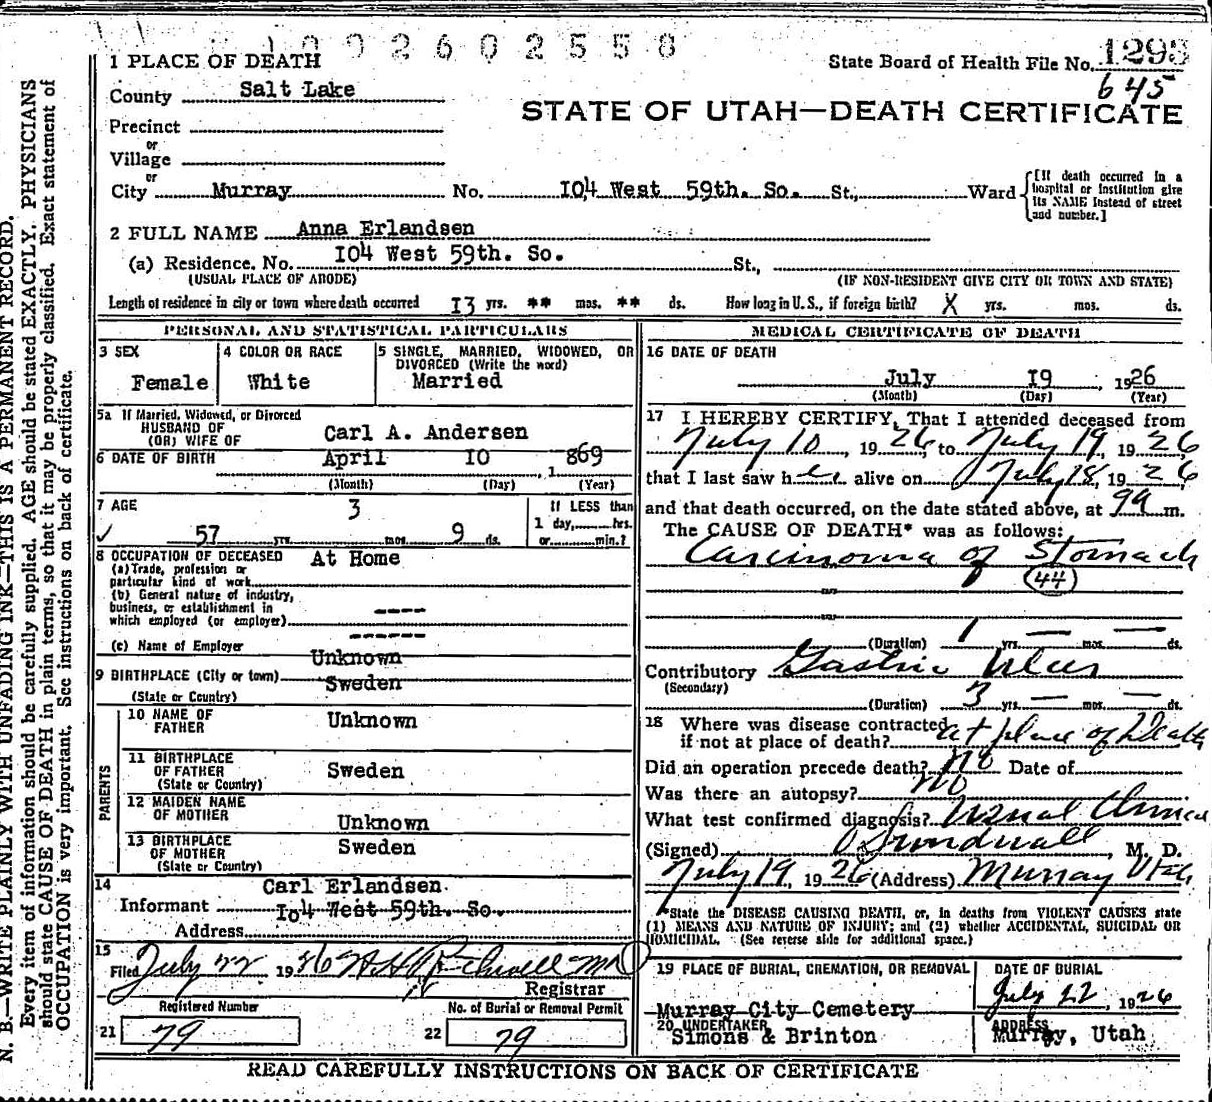 1002602558
1 PLACE OF DEATH
State Board of Health File No. 1293
645
County Salt Lake
STATE OF UTAH—DEATH CERTIFICATE
Precinct
or
Village
or
City Murray No. 104 West 59th. So. St., Ward
[If death occurred in a hospital or institution give its NAME instead of street and number.]
2 FULL NAME Anna Erlandsen
(a) Residence. No. 104 West 59th. So. St.,
(USUAL PLACE OF ABODE) (IF NON-RESIDENT GIVE CITY OR TOWN AND STATE)
Length of residence in city or town where death occurred 13 yrs. ** mos. ** ds. How long in U.S., if foreign birth? X yrs. mos. ds.
PERSONAL AND STATISTICAL PARTICULARS
3 SEX
Female
4 COLOR OR RACE
White
5 SINGLE, MARRIED, WIDOWED, OR
DIVORCED (Write the word)
Married
5a If Married, Widowed, or Divorced
HUSBAND OF
(OR) WIFE OF Carl A. Andersen
6 DATE OF BIRTH April 10 , 1869
(Month) (Day) (Year)
7 AGE
57 yrs. 3 mos. 9 ds.
If LESS than
1 day, hrs.
or min.?
8 OCCUPATION OF DECEASED At Home
(a) Trade, profession or
particular kind of work
(b) General nature of industry,
business, or establishment in
which employed (or employer) ----
(c) Name of Employer ------
9 BIRTHPLACE (City or town) Unknown
(State or Country) Sweden
PARENTS
10 NAME OF
FATHER Unknown
11 BIRTHPLACE
OF FATHER Sweden
(State or Country)
12 MAIDEN NAME
OF MOTHER Unknown
13 BIRTHPLACE
OF MOTHER Sweden
(State or Country)
14
Informant Carl Erlandsen
Address 104 West 59th. So.
15
Filed July 22 1926
Registrar
Registered Number
21 79
No. of Burial or Removal Permit
22 79
MEDICAL CERTIFICATE OF DEATH
16 DATE OF DEATH
July 19 , 1926
(Month) (Day) (Year)
17 I HEREBY CERTIFY, That I attended deceased from
July 10, 1926, to July 19, 1926
that I last saw her alive on July 18, 1926
and that death occurred, on the date stated above, at 9 a m.
The CAUSE OF DEATH* was as follows:
Carcinoma of Stomach
(44)
(Duration) 1 yrs. — mos. — ds.
Contributory Gastric Ulcer
(Secondary)
(Duration) 3 yrs. — mos. — ds.
18 Where was disease contracted
if not at place of death? at place of Death
Did an operation precede death? No Date of
Was there an autopsy? No
What test confirmed diagnosis? Usual Clinical
(Signed) Sundwall, M. D.
July 19, 1926 (Address) Murray Utah
*State the DISEASE CAUSING DEATH, or, in deaths from VIOLENT CAUSES state
(1) MEANS AND NATURE OF INJURY; and (2) whether ACCIDENTAL, SUICIDAL OR
HOMICIDAL. (See reverse side for additional space.)
19 PLACE OF BURIAL, CREMATION, OR REMOVAL
Murray City Cemetery
DATE OF BURIAL
July 22, 1926
20 UNDERTAKER
Simons & Brinton
ADDRESS
Murray, Utah
READ CAREFULLY INSTRUCTIONS ON BACK OF CERTIFICATE
N. B.—WRITE PLAINLY WITH UNFADING INK—THIS IS A PERMANENT RECORD.
Every item of information should be carefully supplied. AGE should be stated EXACTLY. PHYSICIANS
should state CAUSE OF DEATH in plain terms, so that it may be properly classified. Exact statement of
OCCUPATION is very important. See instructions on back of certificate.